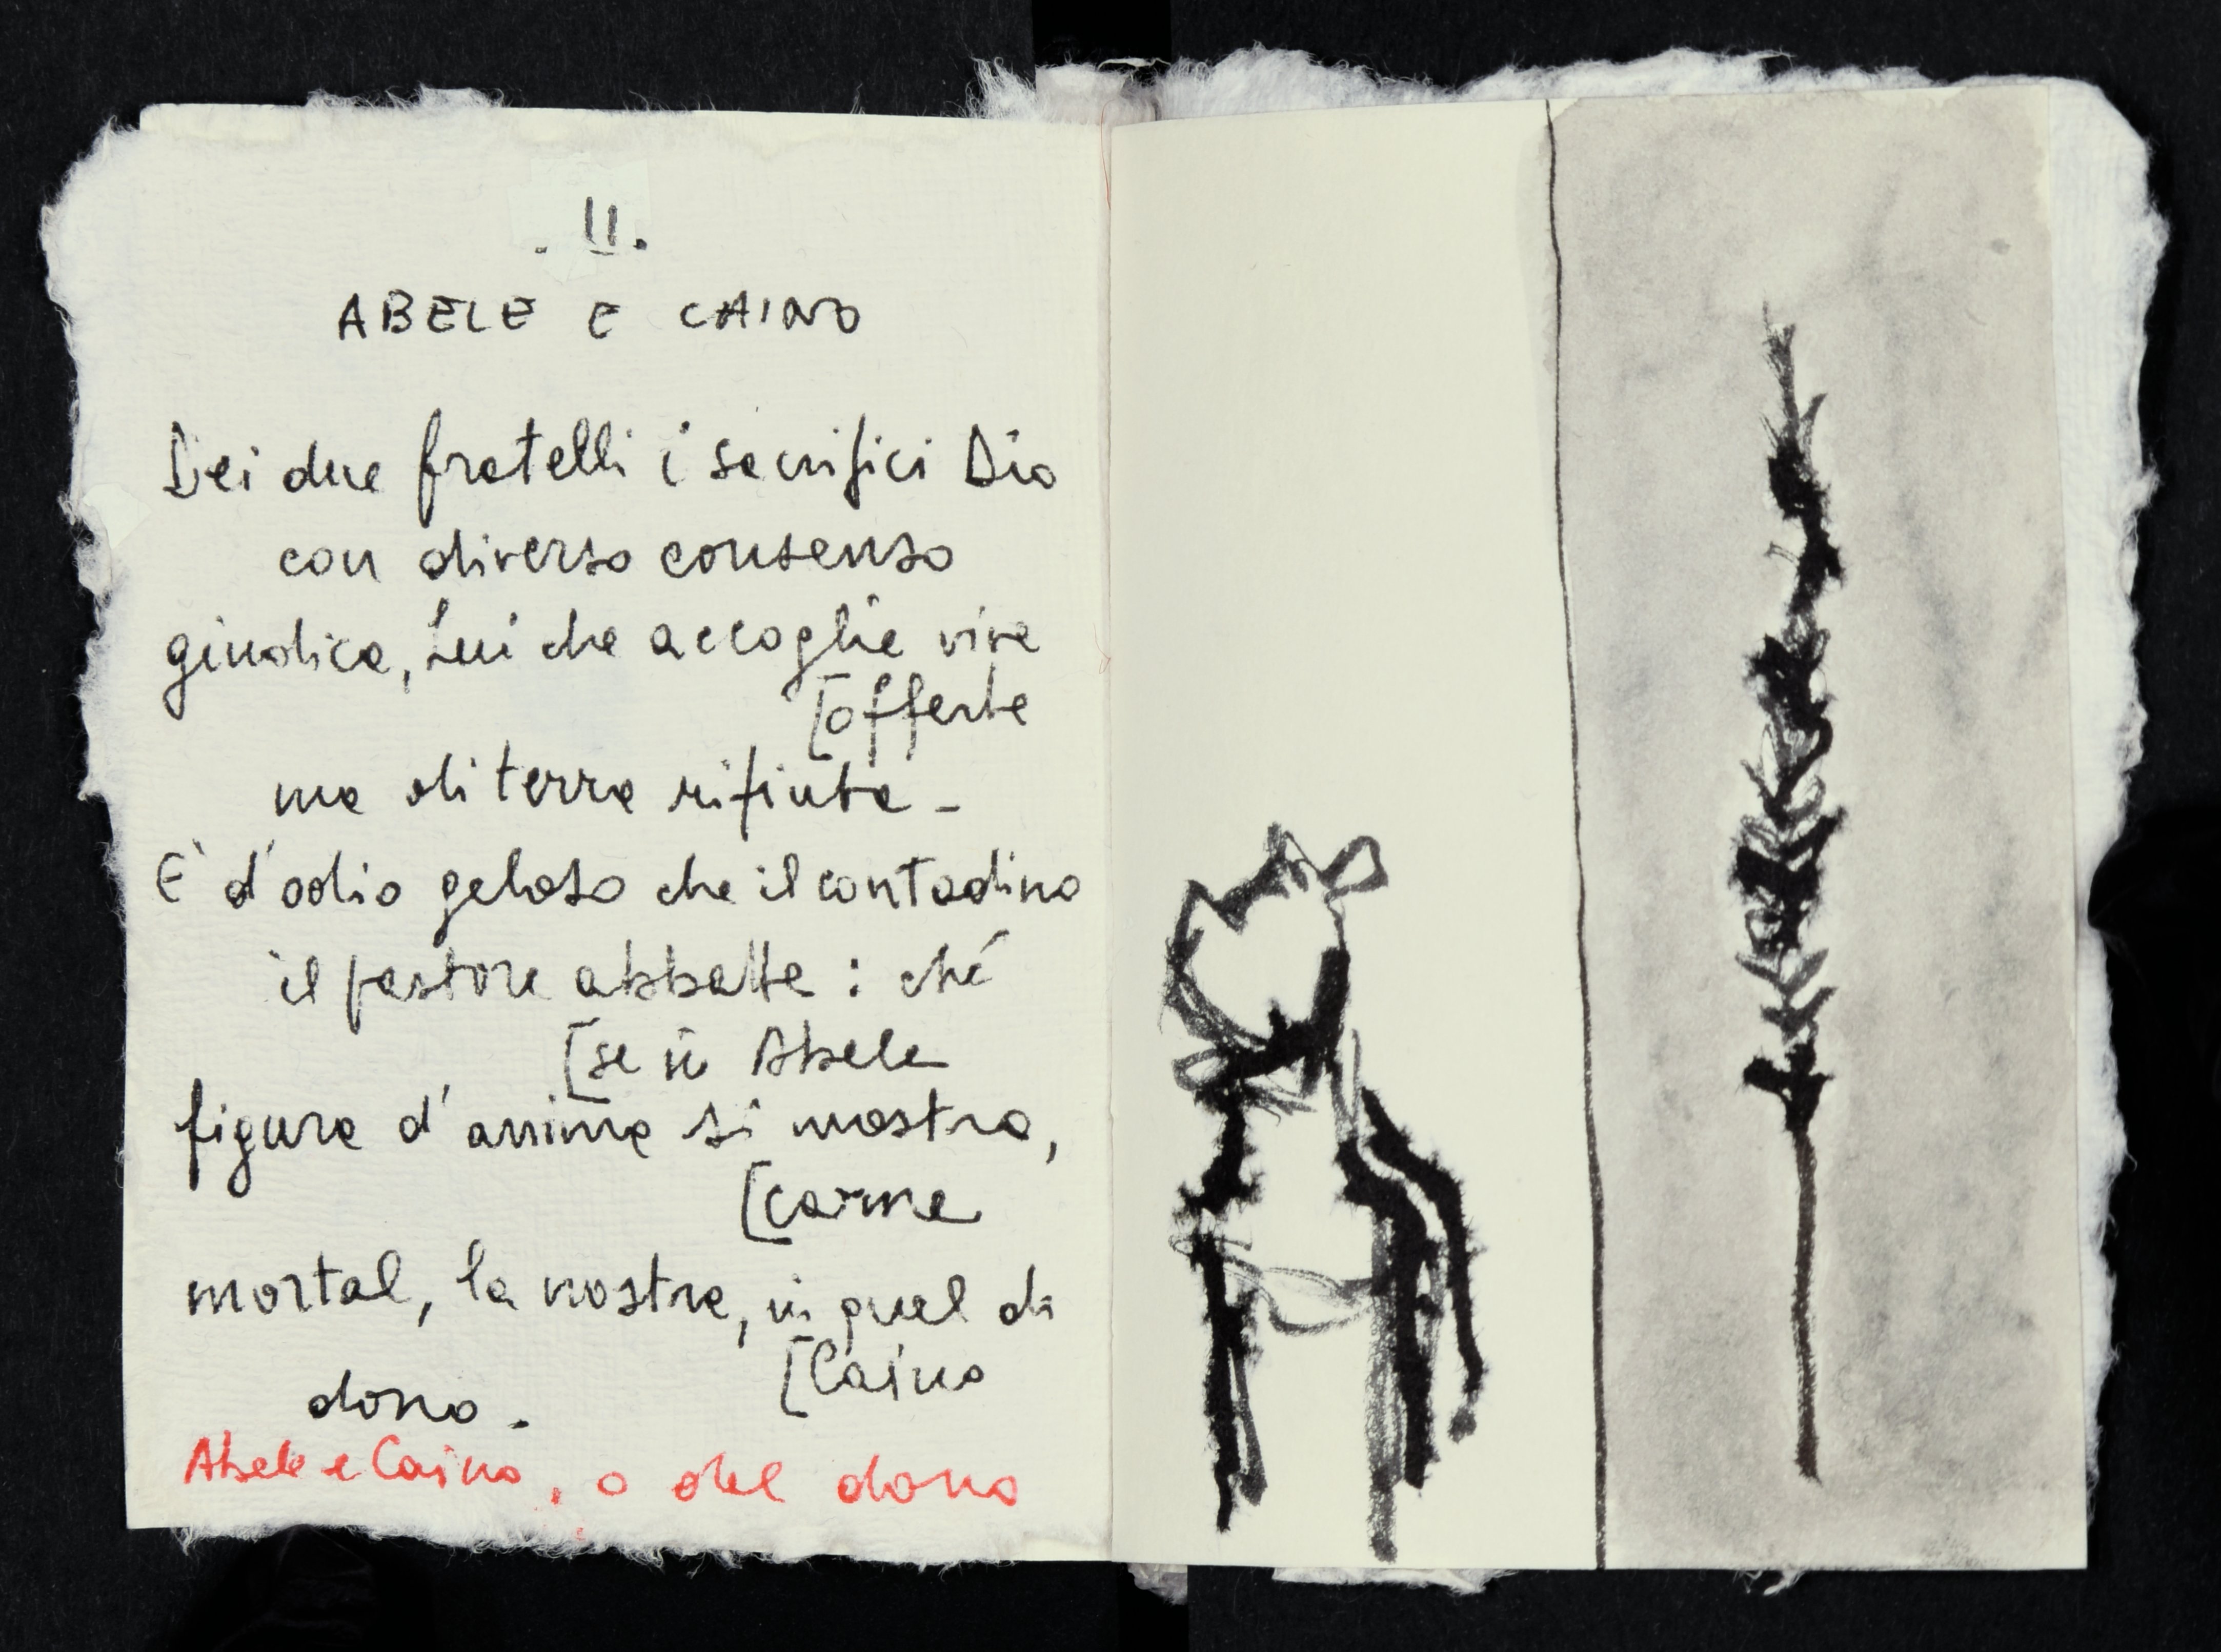 . II .
ABELE E CAINO
Dei due fratelli i sacrifici Dio
con diverso consenso
giudica, Lui che accoglie vive
[offerte
ma di terra rifiuta -
E' d'odio geloso che il contadino
il pastore abbatte : ché
[se in Abele
figura d'anima si mostra,
[carne
mortal, la nostra, in quel di
[Caino
dono.
Abele e Caino, o del dono